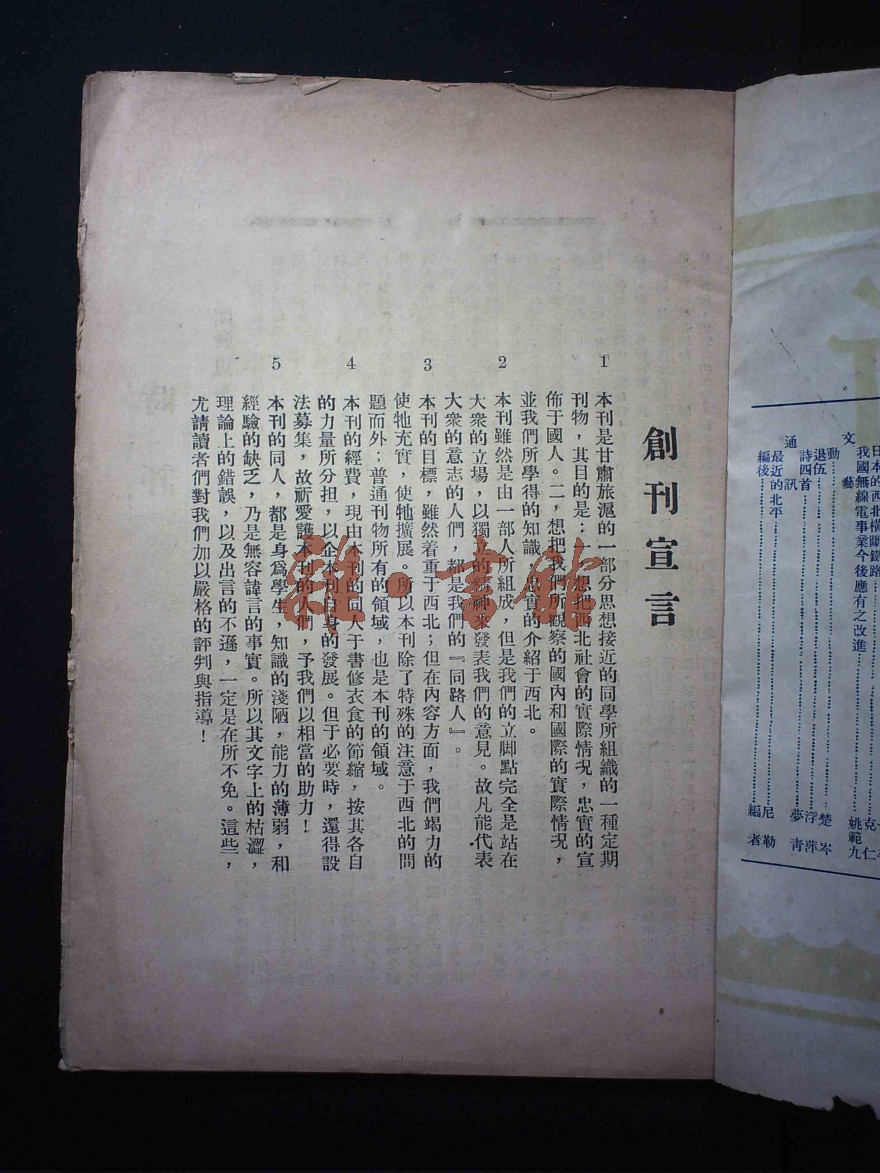 日本的西北橫斷鐵路……克仁
我國無線電事業今後應有之改進……姚範九
文藝
動……楚岑
退伍……浮萍
詩四首……夢青
通訊
最近的北平……尼勒
編後……編者
創刊宣言
1 本刊是甘肅旅滬的一部分思想接近的同學所組織的一種定期
刊物，其目的是：一，想把西北社會的實際情况，忠實的宣
佈于國人。二，想把我們所觀察的國內和國際的實際情况，
並我們所學得的知識，忠實的介紹于西北。
2 本刊雖然是由一部人所組成，但是我們的立脚點完全是站在
大衆的立場，以獨立的精神來發表我們的意見。故凡能代表
大衆的意志的人們，都是我們的『同路人』。
3 本刊的目標，雖然着重于西北；但在內容方面，我們竭力的
使牠充實，使牠擴展。所以本刊除了特殊的注意于西北的問
題而外；普通刊物所有的領域，也是本刊的領域。
4 本刊的經費，現由本刊的同人于書修衣食的節縮，按其各自
的力量所分担，以企本刊自身的發展。但于必要時，還得設
法募集，故祈愛護本刊的人們，予我們以相當的助力！
5 本刊的同人，都是身爲學生，知識的淺陋，能力的薄弱，和
經驗的缺乏，乃是無容諱言的事實。所以其文字上的枯澀，
理論上的錯誤，以及出言的不遜，一定是在所不免。這些，
尤請讀者們對我們加以嚴格的評判與指導！
雜·書館